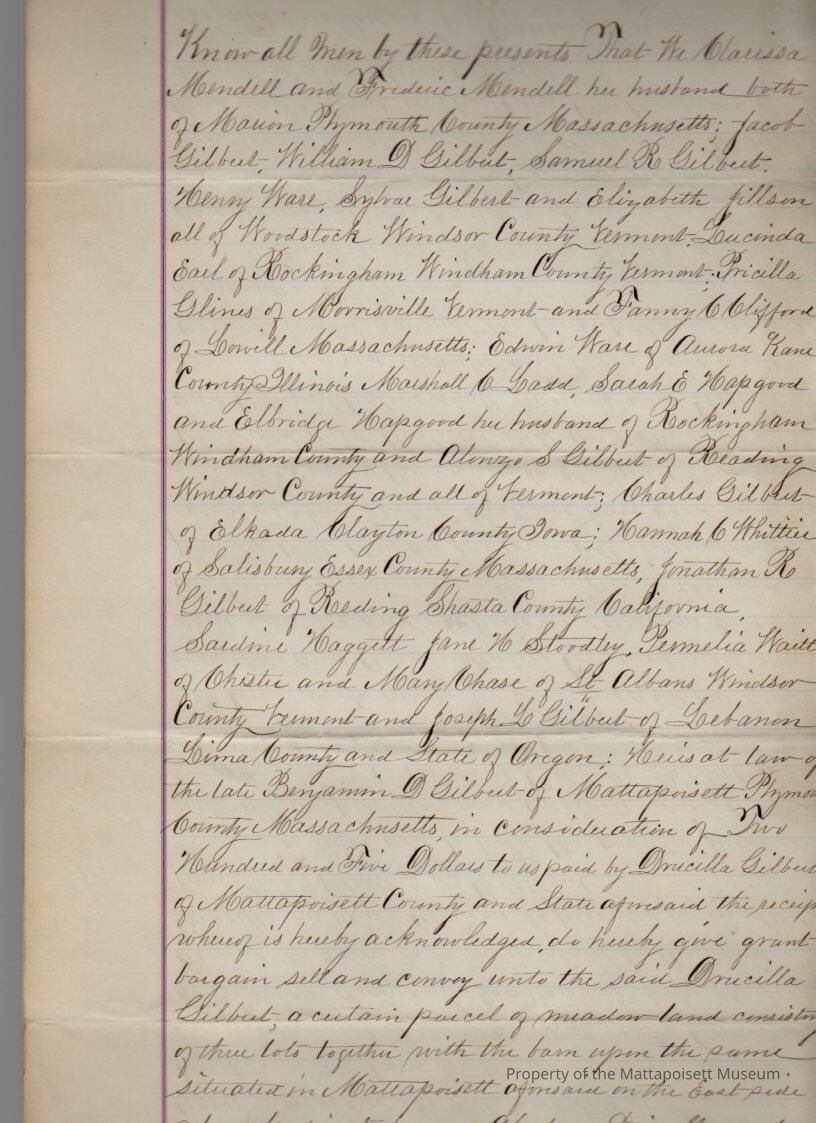 Know all Men by these presents That We Clarissa
Mendell and Frederic Mendell her husband both
of Marion Plymouth County Massachusetts; Jacob
Gilbert, William D Gilbert, Samuel R Gilbert.
Henry Ware, Sylvae Gilbert and Elizabeth Jillson
all of Woodstock Windsor County Vermont Lucinda
Earl of Rockingham Windham County Vermont; Pricilla
Glines of Morrisville Vermont and Fanny C Clifford
of Lowell Massachusetts; Edwin Ware of Aurora Kane
County Illinois Marshall C Ladd, Sarah E Hapgood
and Elbridge Hapgood her husband of Rockingham
Windham County and Alonzo S Gilbert of Reading
Windsor County and all of Vermont; Charles Gilbert
of Elkada Clayton County Iowa; Hannah C Whittier
of Salisbury Essex County Massachusetts, Jonathan R
Gilbert of Reding Shasta County California,
Sardine Haggett Jane H Stoodley, Permelia Waitt
of Chister and Mary Chase of St Albans Windsor
County Vermont and Joseph L Gilbert of Lebanon
Linna County and State of Oregon; Heirs at law of
the late Benjamin D Gilbert of Mattapoisett Plymou
County Massachusetts, in consideration of Two
Hundred and Five Dollars to us paid by Drucilla Gilbert
of Mattapoisett County and State aforesaid the receip
whereof is hereby acknowledged, do hereby give grant
bargain sell and convey unto the said Drucilla
Gilbert, a certain parcel of meadow land consistin
of three lots together with the barn upon the same
Property of the Mattapoisett Museum
situated in Mattapoisett aforesaid on the East side